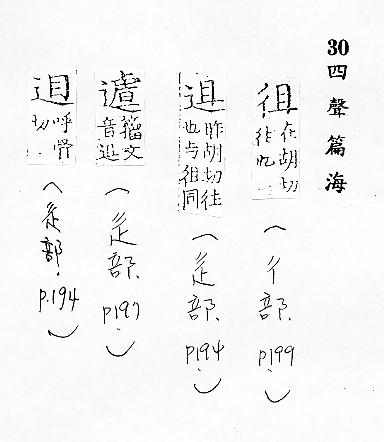 30 四聲篇海
徂 在胡切
(彳部. p199)
䢐 昨胡切往
也与徂同
(辵部. p194)
籀文
音
(辵部. p197)
呼骨
切
(辵部. p.194)